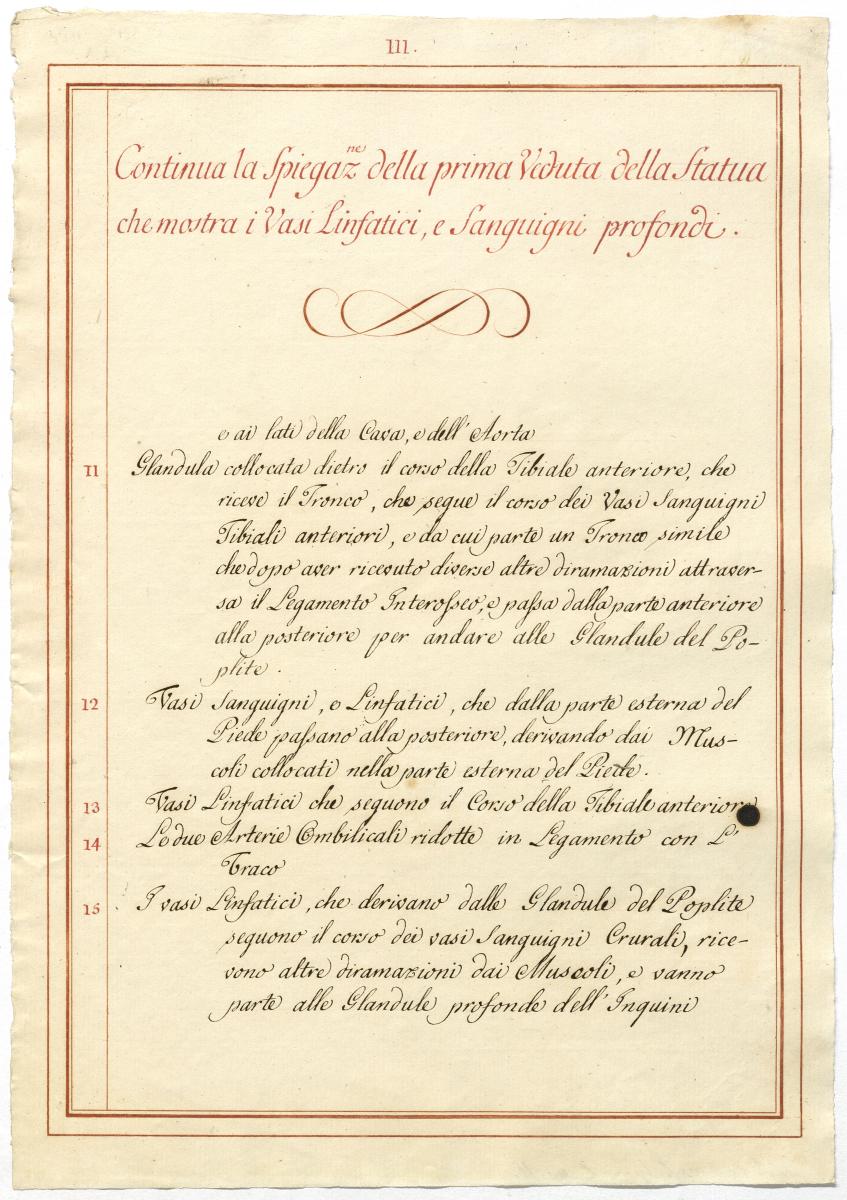 III.
Continua la Spiegaz.ne della prima Veduta della Statua
che mostra i Vasi Linfatici, e Sanguigni profondi.
e ai lati della Cava, e dell' Aorta
11 Glandula collocata dietro il corso della Tibiale anteriore, che
riceve il Tronco, che segue il corso dei Vasi Sanguigni
Tibiali anteriori, e da cui parte un Tronco simile
che dopo aver ricevuto diverse altre diramazioni attraver-
sa il Legamento Interosseo, e passa dalla parte anteriore
alla posteriore per andare alle Glandule del Po-
plite.
12 Vasi Sanguigni, e Linfatici, che dalla parte esterna del
Piede passano alla posteriore, derivando dai Mus-
coli collocati nella parte esterna del Piede.
13 Vasi Linfatici che seguono il Corso della Tibiale anteriore
14 Le due Arterie Ombilicali ridotte in Legamento con L'
Uraco
15 I vasi Linfatici, che derivano dalle Glandule del Poplite
seguono il corso dei vasi Sanguigni Crurali, rice-
vono altre diramazioni dai Muscoli, e vanno
parte alle Glandule profonde dell' Inguini